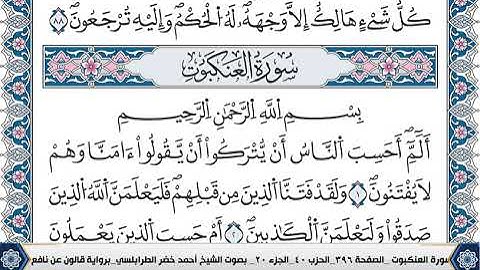 كُلُّ شَيْءٍ هَالِكٌ إِلَّا وَجْهَهُۥ لَهُ الْحُكْمُ وَإِلَيْهِ تُرْجَعُونَ ٨٨
سُورَةُ الْعَنْكَبُوتِ
بِسْمِ اللَّهِ الرَّحْمَٰنِ الرَّحِيمِ
أَلَٓمِّٓ أَحَسِبَ النَّاسُ أَنْ يُّتْرَكُوٓا أَنْ يَّقُولُوٓا ءَامَنَّا وَهُمْ
لَا يُفْتَنُونَ ١ وَلَقَدْ فَتَنَّا الذِينَ مِن قَبْلِهِمْ فَلَيَعْلَمَنَّ اللَّهُ الذِينَ
صَدَقُوا وَلَيَعْلَمَنَّ الْكَٰذِبِينَ ٢ أَمْ حَسِبَ الذِينَ يَعْمَلُونَ
سورة العنكبوت _الصفحة ٣٩٦_ الحزب ٤٠_ الجزء ٢٠ _ بصوت الشيخ أحمد خضر الطرابلسي _برواية قالون عن نافع